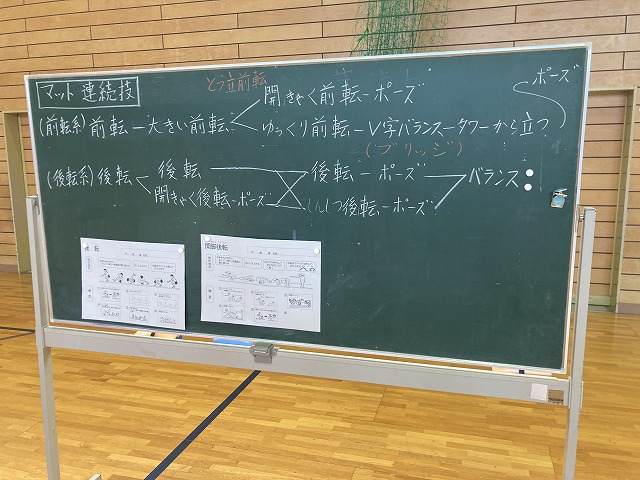 マット連続技
とう立前転
ポーズ
開きゃく前転ーポーズ
(前転系)前転ー大きい前転
ゆっくり前転ーV字バランスータワーから立つ
(ブリッジ)
(後転系)後転
後転
後転ーポーズ
バランス
開きゃく後転ーポーズ
しんしつ後転ーポーズ
後転
開脚後転